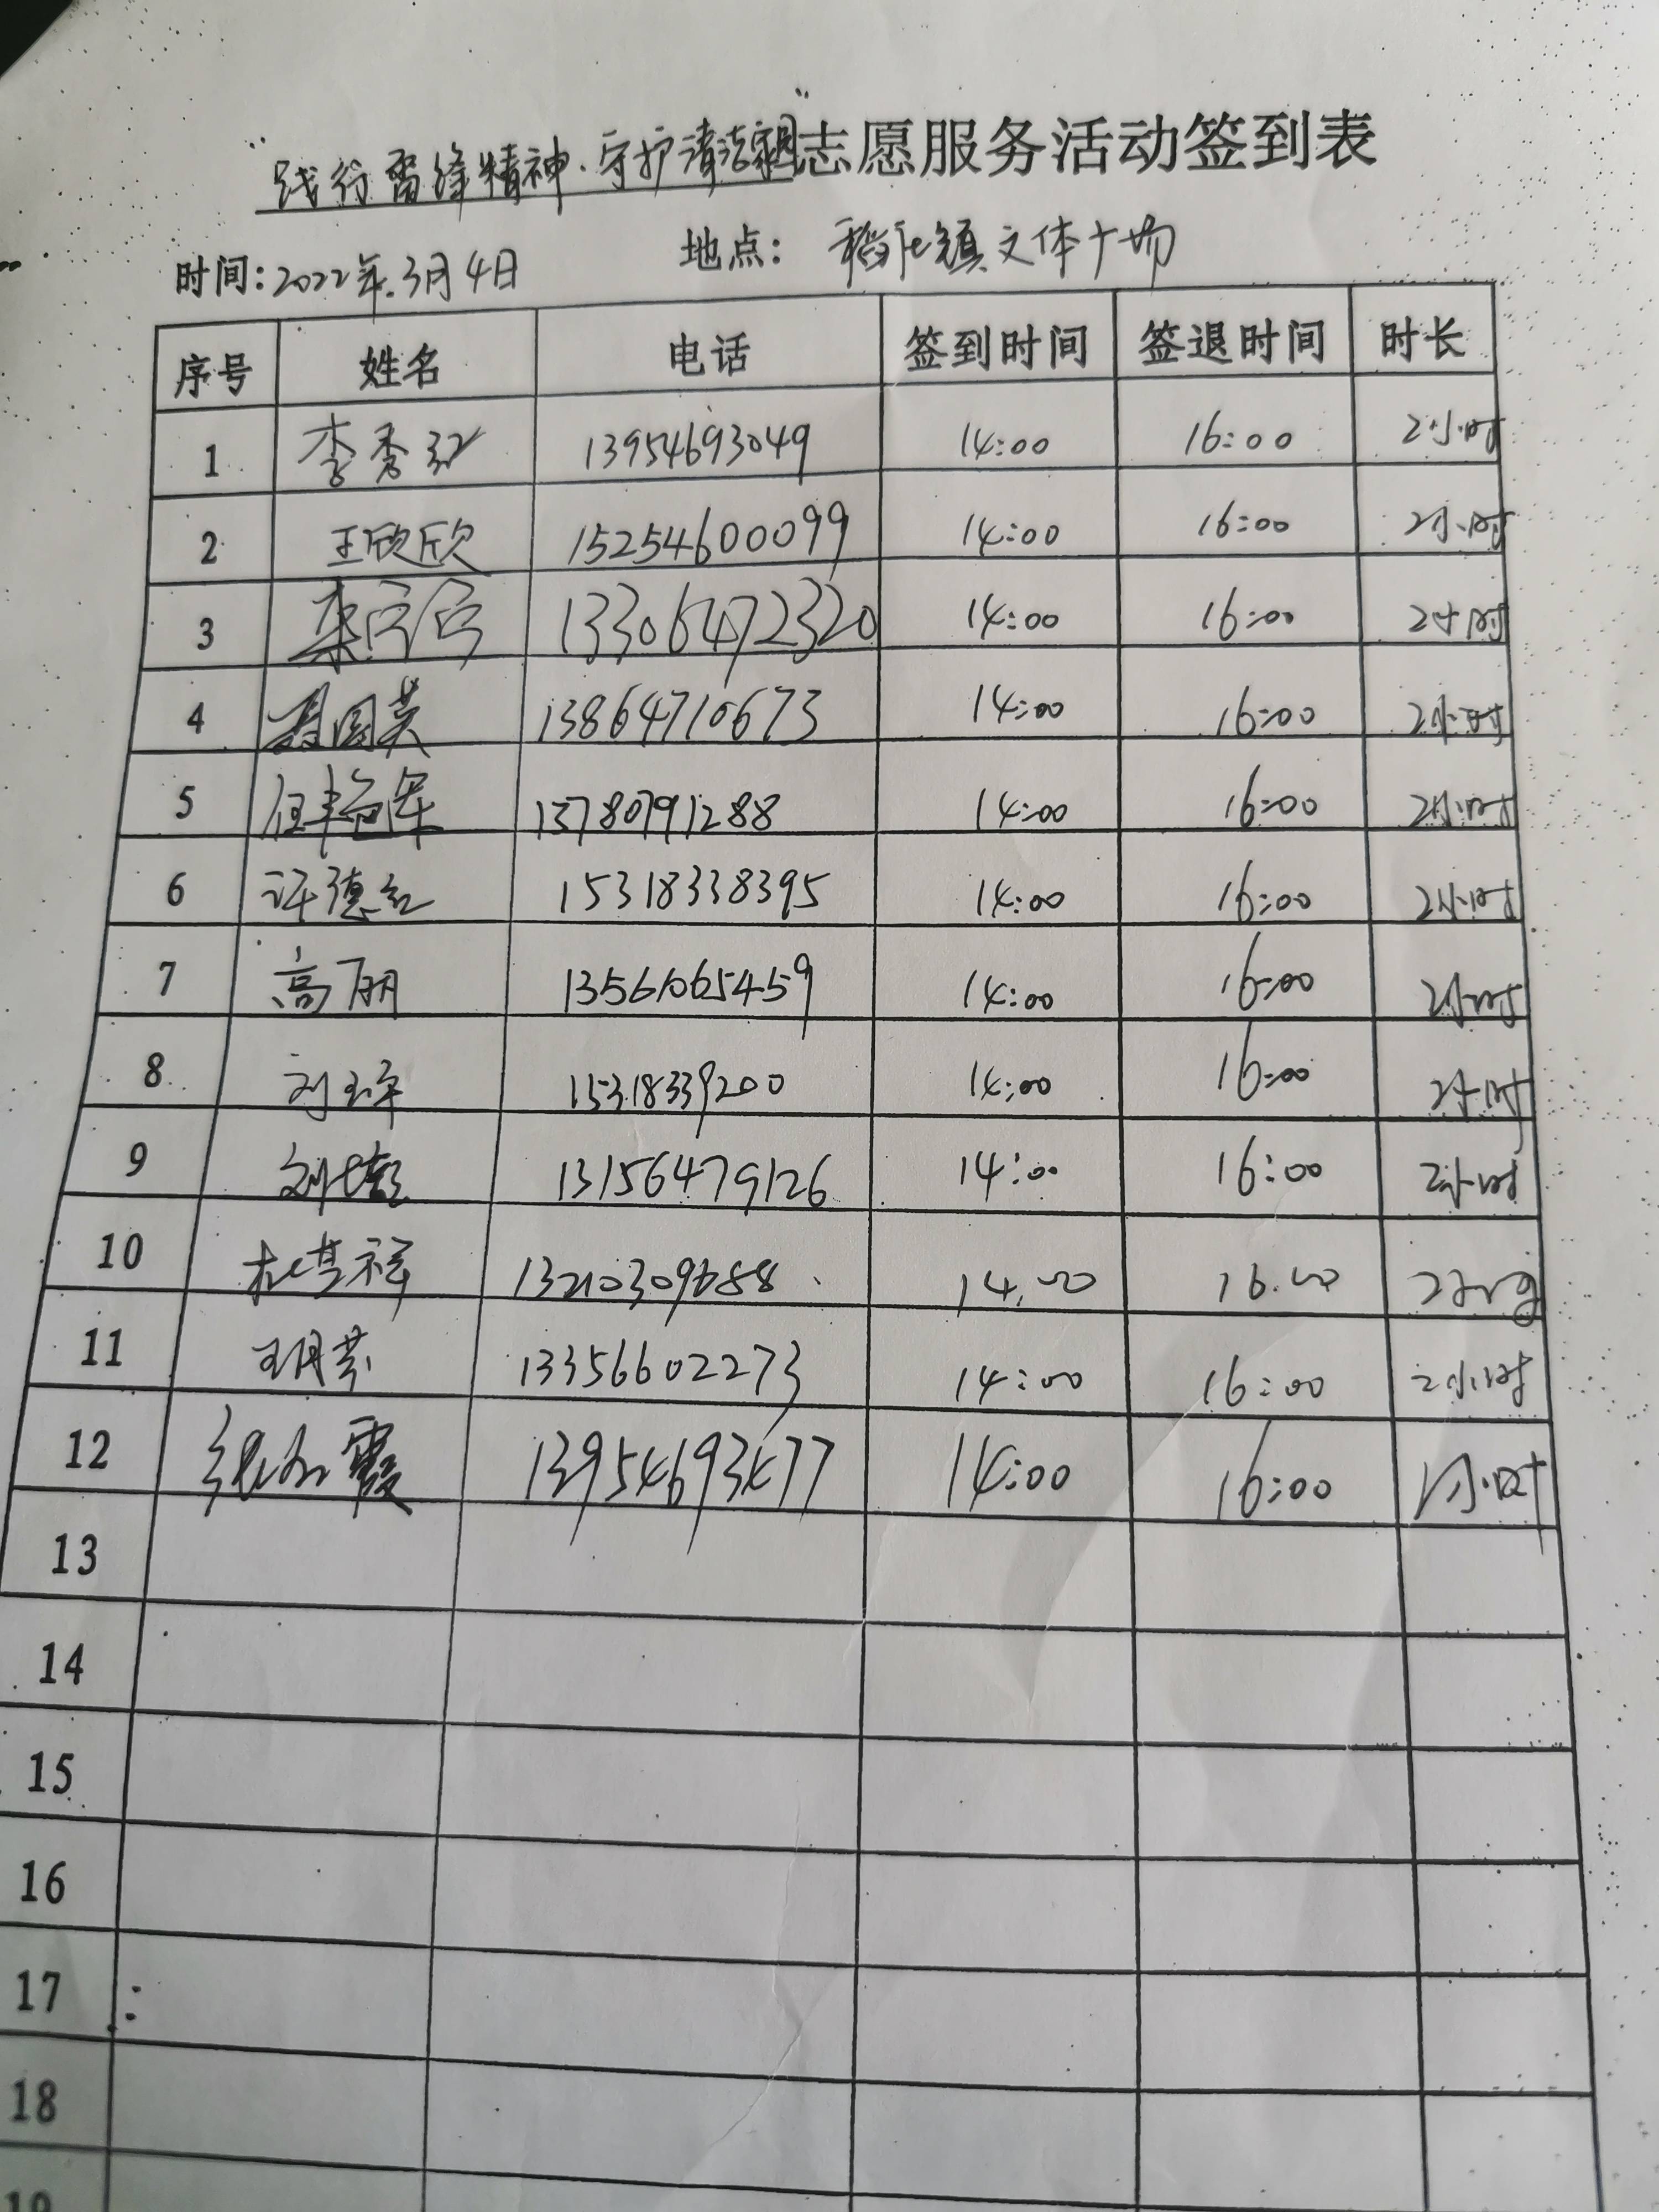 "践行雷锋精神·守护清洁家园"志愿服务活动签到表
时间:2022年.3月4日 地点: 稻庄镇文体广场
序号 姓名 电话 签到时间 签退时间 时长
1 李秀红 13954693049 14:00 16:00 2小时
2 王欣欣 15254600099 14:00 16:00 2小时
3 13306472320 14:00 16:00 2小时
4 聂国英 13864710673 14:00 16:00 2小时
5 任艳军 13780791288 14:00 16:00 2小时
6 许德红 15318338395 14:00 16:00 2小时
7 高丽 13561065459 14:00 16:00 2小时
8 15318339200 14:00 16:00 2小时
9 13156479126 14:00 16:00 2小时
10 14:00 16:00 2小时
11 13356602273 14:00 16:00 2小时
12 13954693477 14:00 16:00 2小时
13
14
15
16
17
18
19